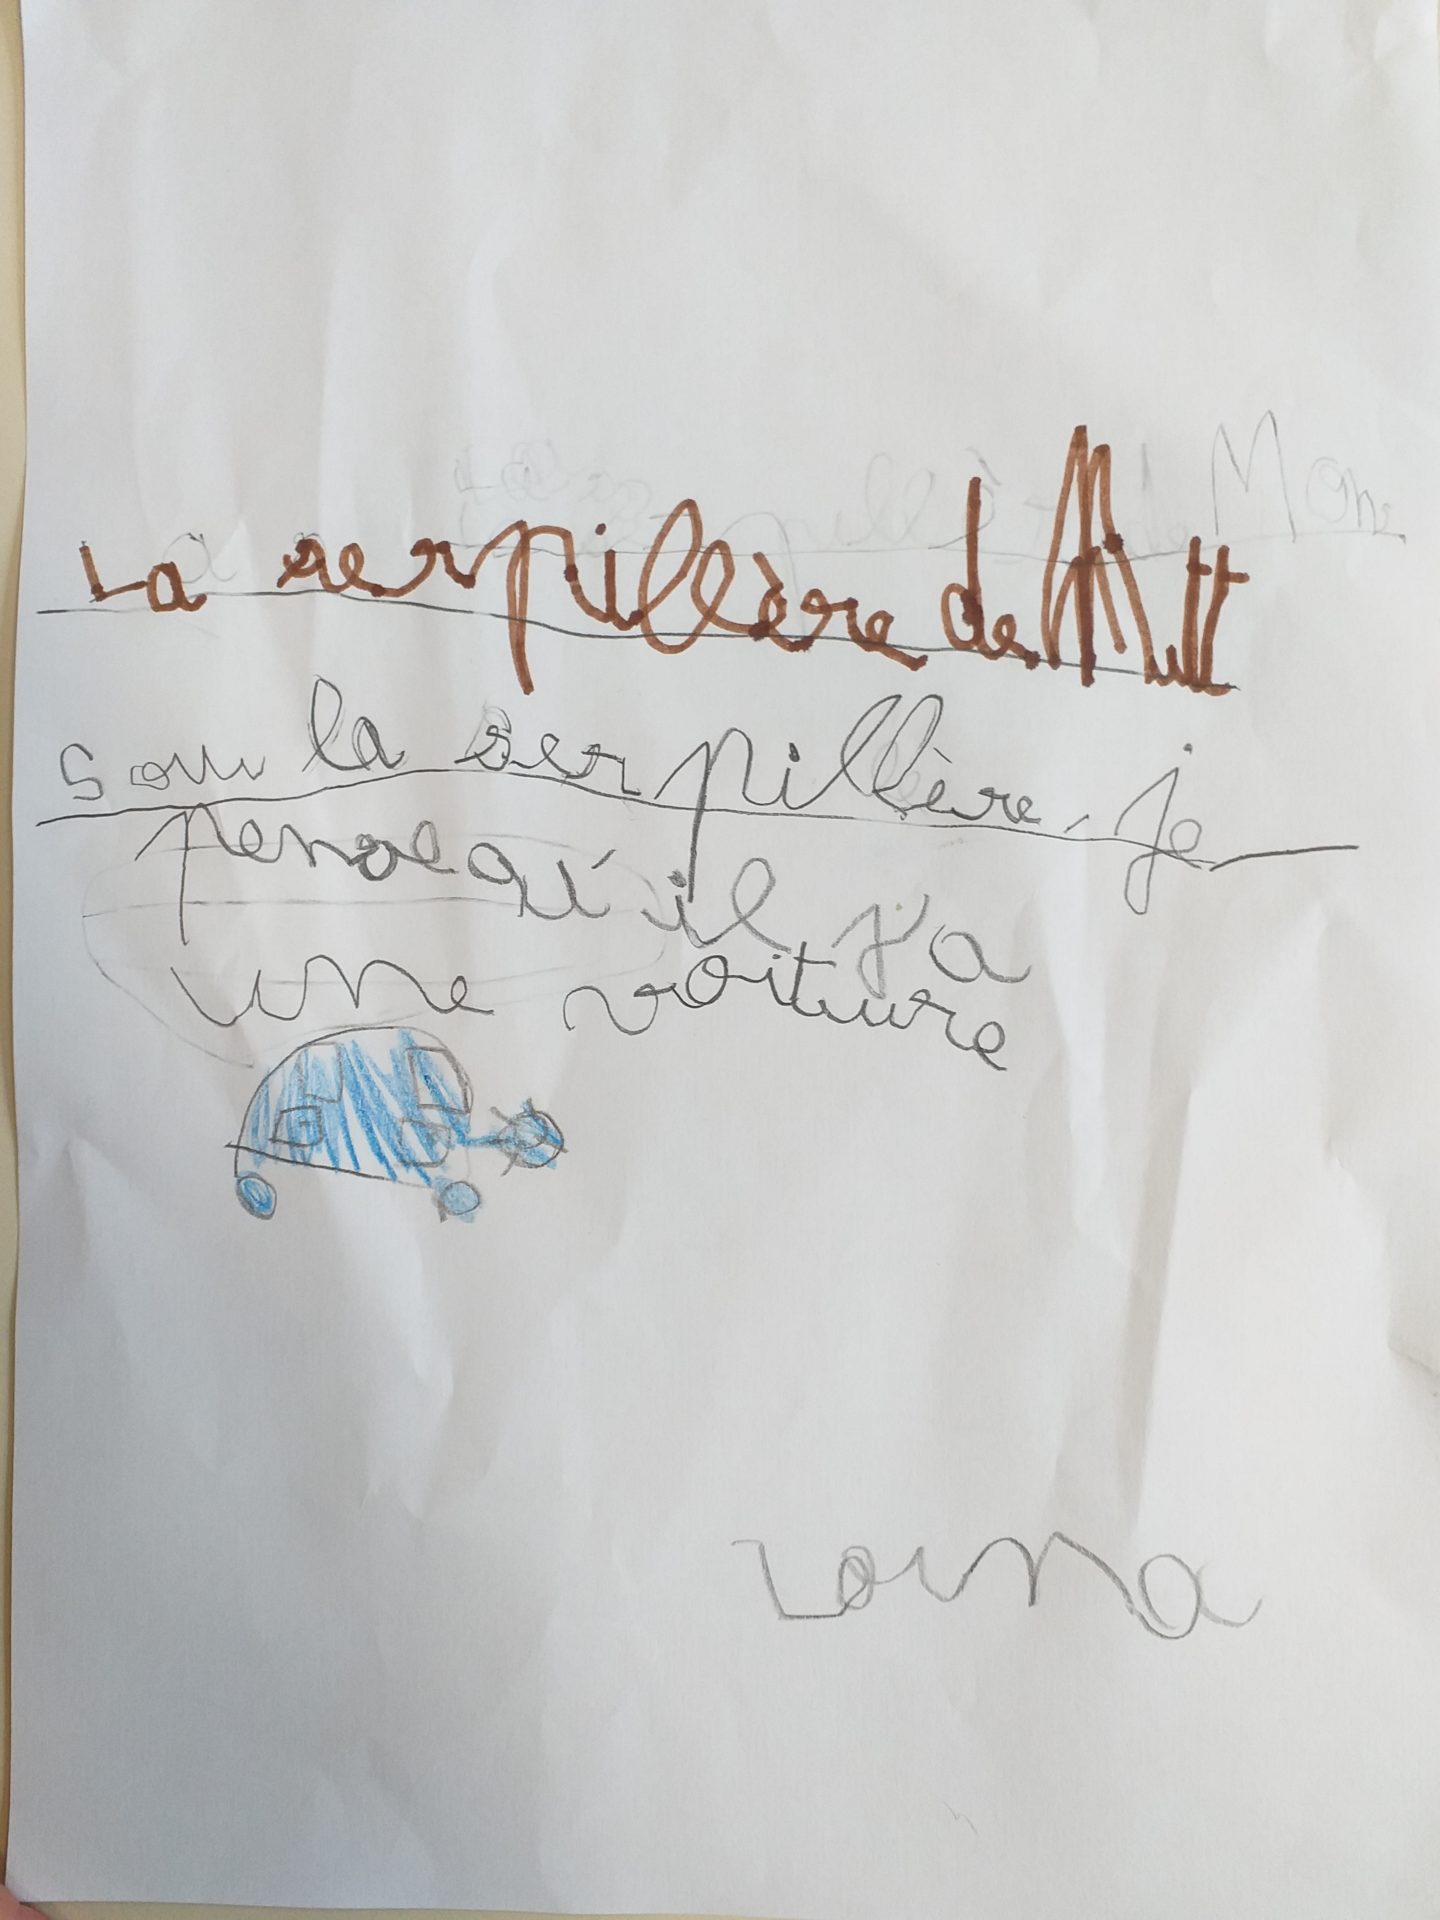 La serpillère de Mutt
Sous la serpillère, je
pense qu'il y a
une voiture
Loïsna